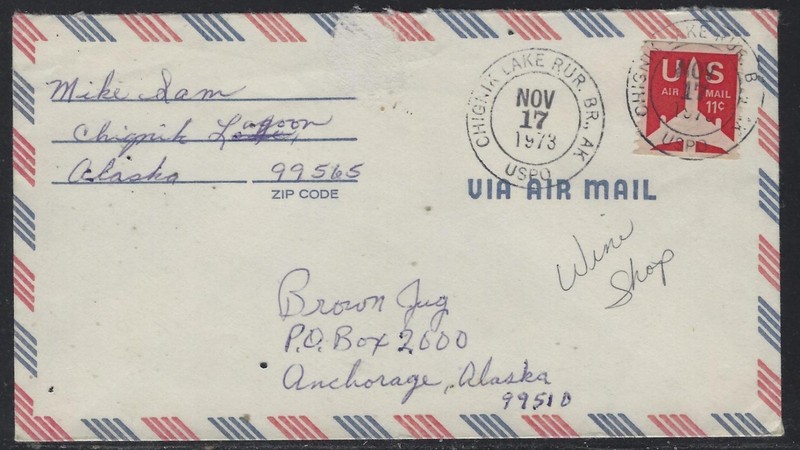 Mike Sam
Chignik Lagoon
Alaska 99565
ZIP CODE
CHIGNIK LAKE RUR. BR., AK
NOV
17
1973
USPO
CHIGNIK LAKE RUR. B
NOV
17
197
USPO
US
AIR MAIL
11¢
VIA AIR MAIL
Wine
Shop
Brown Jug
P.O. Box 2000
Anchorage, Alaska
99510